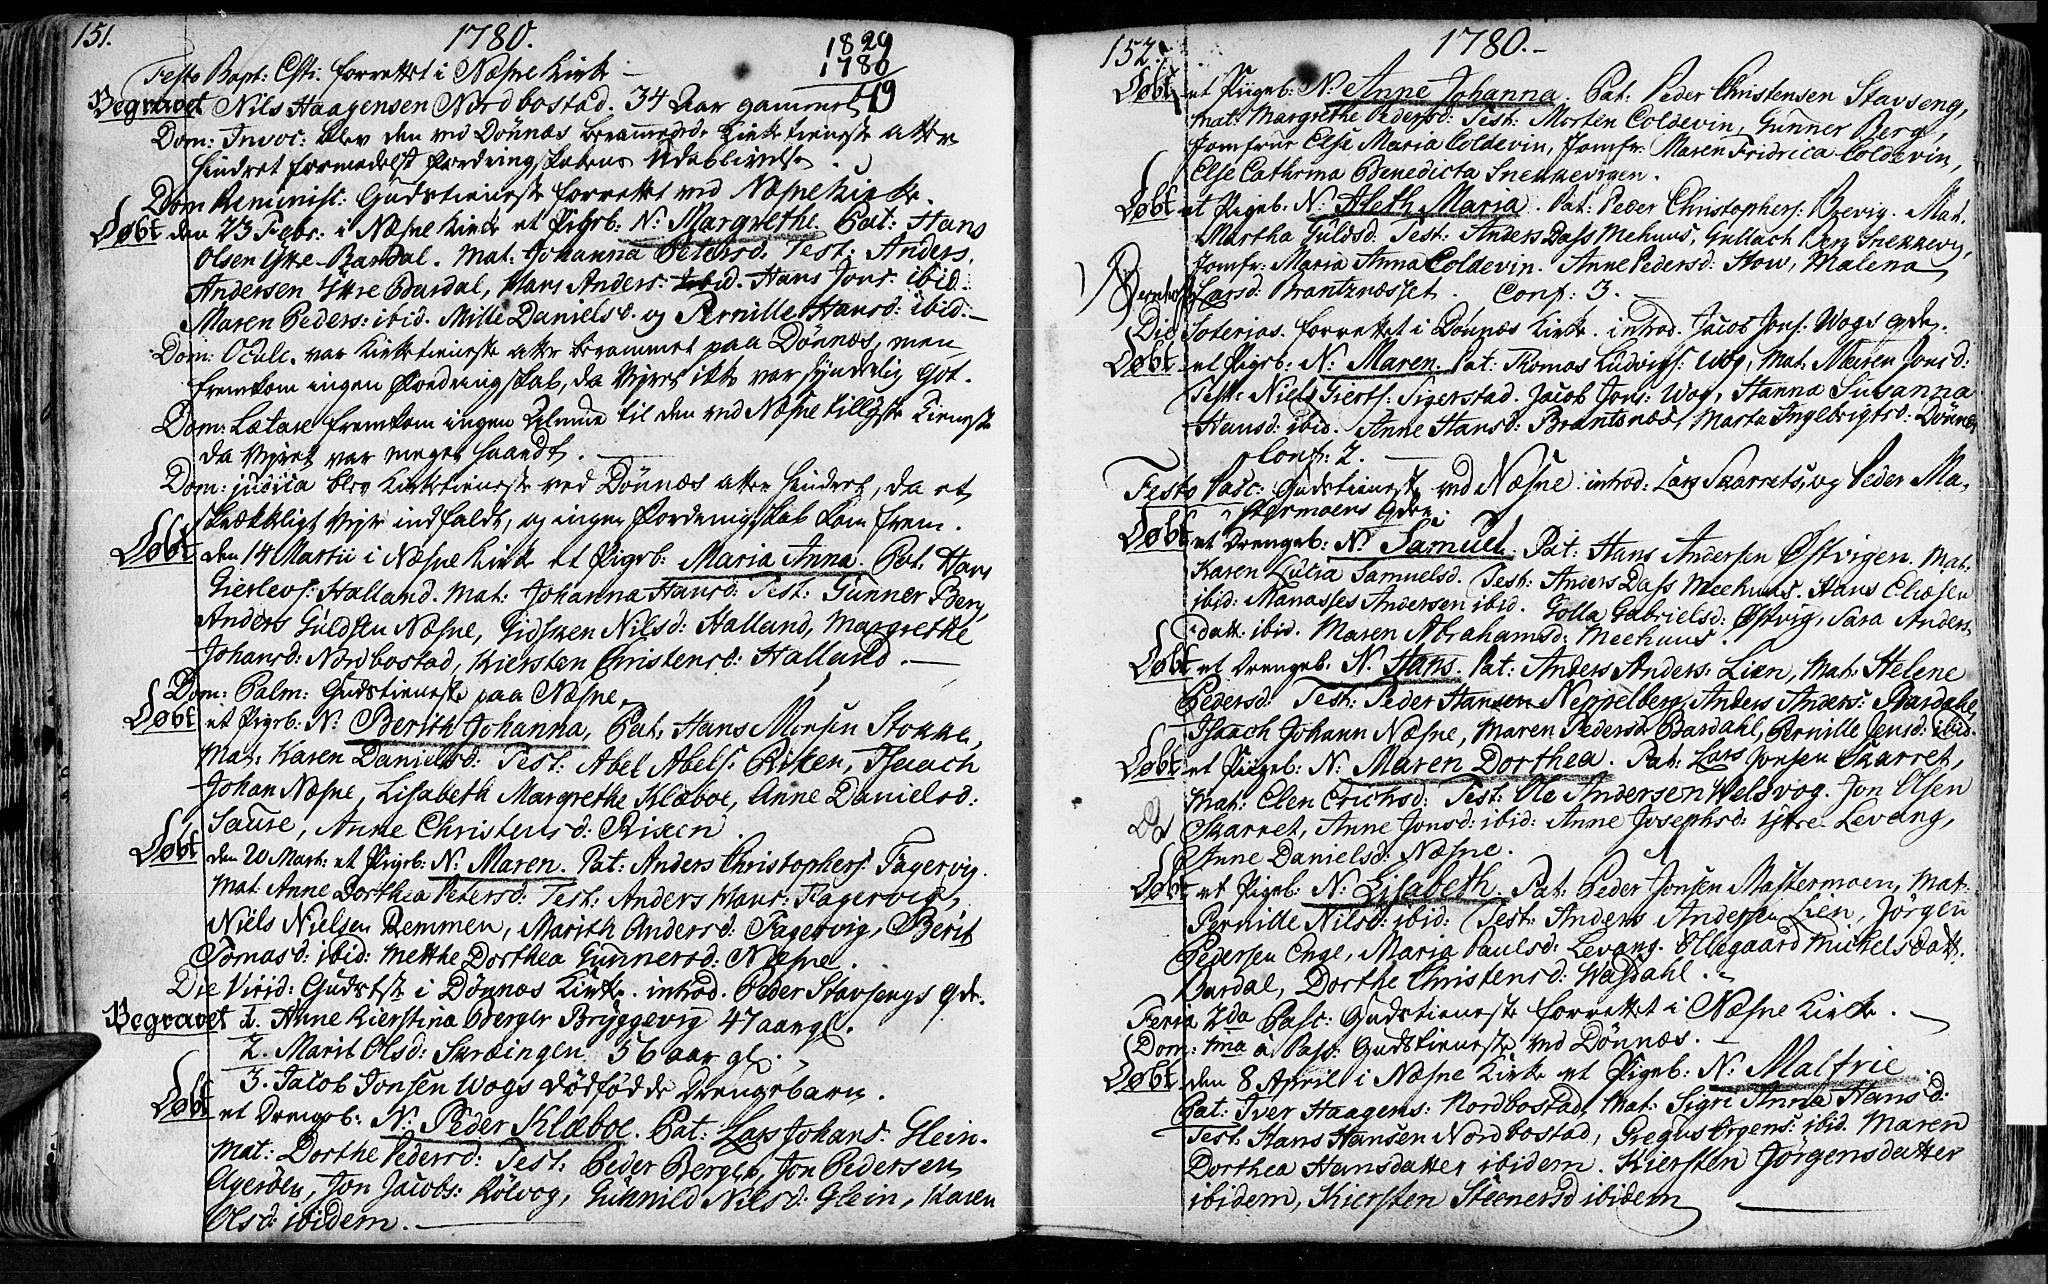 151.
1780.
1829
1780
49
Festo Bapt: Csti: forrettet i Næsne Kirke
Begravet Nils Haagensen Nordbostad. 34 Aar gammel
Dom: Invoc: blev den ved Dönnæs berammede Kirketieneste atter
hindret formedelst fordring skabens Udeblivelse.
Dom Reminisc: Gudstieneste forrettet ved Næsne Kirke.
Døbt den 23 Febr: i Næsne Kirke et Pigeb: N: Margrethe. Pat: Hans
Olsen Ytre Bardal. Mat: Johanna Petersd: Test: Anders
Andersen Ytre Bardal, Hans Anders: ibid. Hans Jons: ibid:
Maren Peders: ibid. Mille Danielsd. og Pernille Hansd: ibid:
Dom: Oculi. var Kirketieneste atter berammet paa Dönnæs, men
fremkom ingen fordringskab, da Vejret ikke var synderlig Got.
Dom: Lætare fremkom ingen Almue til den ved Næsne tillyste Tieneste
da Vejret var meget haardt.
Dom: judica blev Kirketieneste ved Dönnæs atter hindret, da et
skrækkeligt Vejr indfaldt, og ingen fordringskab kom frem.
Døbt den 14 Martii i Næsne Kirke et Pigeb: Maria Anna. Pat: Hans
Gierlevs: Halland. Mat: Johanna Hansd: Test: Gunner Berg,
Anders Guldsen Næsne, Sidsken Nilsd: Halland, Margrethe
Johansd: Nordbostad, Kiersten Christensd: Halland.
Dom: Palm: Gudstieneste paa Næsne.
Døbt et Pigeb: N: Berith Johanna, Pat: Hans Monsen Stokke,
Mat: Karen Danielsd: Test: Abel Abels: Riken, Isaach
Johan Næsne, Lisabeth Margrethe Klæboe, Anne Danielsd:
Saure, Anne Christensd: Riken.
Døbt den 20 Mart: et Pigeb: N: Maren. Pat: Anders Christophers: Fagervig.
Mat: Anne Dorthea Petersd: Test: Anders Hans: Fagervig,
Niels Nielsen Remmen, Marith Andersd: Fagervig, Berit
Tomasd: ibid: Metthe Dorthea Gunnersd: Næsne.
Die Virid: Gudstst: i Dönnæs Kirke. introd. Peder Stavsengs qde.
Begravet 1. Anne Kierstina Berger Bryggevig 47 aar gl.
2. Marit Olsd: Skræingen 56 aar gl.
3. Jacob Jonsen Wogs dödfödde Drengebarn.
Døbt et Drengeb: N: Peder Klæboe. Pat: Lars Johans: Glein.
Mat: Dorthe Pedersd: Test: Peder Berger, Jon Pedersen
Agerøen, Jon Jacobs: Rölvog, Gunnild Nilsd: Glein, Karen
Olsd: ibidem.
152.
1780.
Døbt et Pigeb: N: Anne Johanna. Pat: Peder Christensen Stavseng,
Mat: Margrethe Pedersd: Test: Morten Coldevin, Gunner Berg,
Jomfrue Else Maria Coldevin, Jomfr: Maren Fridrica Coldevin,
Else Cathrina Benedicta Snekkevigen.
Døbt et Pigeb: N: Aleth Maria. Pat: Peder Christophers: Brevig. Mat.
Martha Guldsd: Test: Anders Dass Mehuus, Gullach Berg Snekkevig,
Jomfr: Maria Anna Coldevin. Anne Pedersd: How, Malena
Larsd: Brantznæsset. Conf: 3.
Die Soterias. forrettet i Dönnæs Kirke. introd. Jacob Jons: Wogs qde.
Døbt et Pigeb: N: Maren. Pat: Thomas Ludvigs: Wog, Mat: Maren Jonsd:
Test: Niels Gierts: Sigerstad. Jacob Jons: Wog, Hanna Susanna
Hansd: ibid. Anne Hansd: Brantsnæs, Marta Ingebrigtsd: Dönnæs
Conf: 2.
Festo Pasc: Gudstieneste ved Næsne. introd: Lars Skarrets og Peder Ma-
stermoens qder.
Døbt et Drengeb: N: Samuel. Pat: Hans Andersen Østvigen. Mat.
Karen Lulia Samuelsd. Test: Anders Dass Meehuus. Hans Eliesen
ibid: Manasses Andersen ibid. Golla Gabrielsd: Østvig, Sara Anders-
datt: ibid. Maren Abrahamsd: Meehuus.
Døbt et Drengeb: N: Hans. Pat: Anders Anders: Lien, Mat: Helene
Pedersd: Test: Peder Hansen Neppelberg, Anders Anders: Bardahl,
Isaach Johann Næsne, Maren Pedersd: Bardahl, Pernille Jensd: ibid.
Døbt et Pigeb: N: Maren Dorthea. Pat: Lars Jonsen Skarret,
Mat: Elen Erichsd: Test: Ole Andersen Welsvog. Jon Olsen
Skarret, Anne Jonsd: ibid: Anne Josephsd: Ytre Levang,
Anne Danielsd: Næsne.
Døbt et Pigeb: N: Lisabeth. Pat: Peder Jonsen Mastermoen, Mat:
Pernille Nilsd: ibid: Test: Anders Andersen Lien, Jörgen
Pedersen Enge, Maria Paulsd: Levang. Ollegaard Mickelsdatt:
Bardal, Dorthe Christensd: Wagdahl.
Feria 2da Pasc: Gudstieneste forrettet i Næsne Kirke.
Dom: 1ma à Pasc: Gudstieneste ved Dönnæs.
Døbt den 8 April i Næsne Kirke et Pigeb: N: Malfrie
Pat: Iver Haagens: Nordbostad, Mat: Sigri Anna Hansd:
Test: Hans Hansen Nordbostad, Pregus Ørgens: ibid. Maren
Dorthea Hansdatter ibidem. Kiersten Jörgensdatter
ibidem, Kiersten Steenersd ibidem